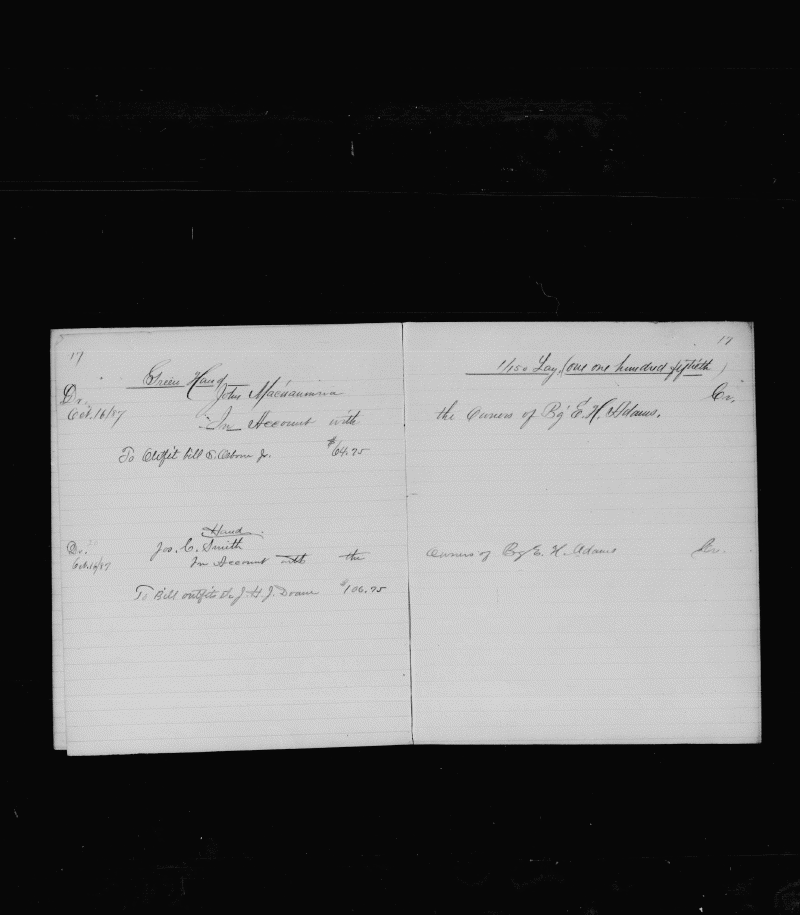 17
Green Hand
John
Dr.
Oct. 16/87
In Account with
To Outfit bill S. Osborn Jr. $64.75
Hand
Dr.
Jos. C. Smith
Oct. 16/87
In Account with the
To Bill outfits J. H. J. Doane $106.75
17
1/150 Lay (one one hundred fiftieth)
Cr.
the Owners of Bg E. H. Adams.
Owners of Bg E. H. Adams